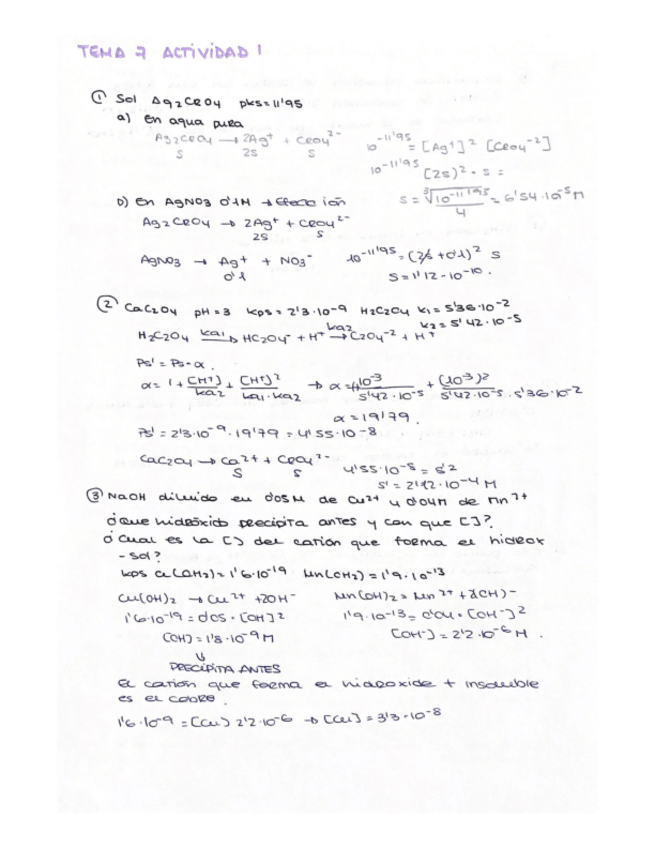 TEMA 7 ACTIVIDAD 1
① Sol Ag2CrO4 pks=11'95
a) En agua pura
Ag2CrO4 → 2Ag+ + CrO4 2-
S 2S S
10^-11'95 = [Ag+]2 [CrO4^-2]
10^-11'95 [2S)2 · S =
S = ∛10^-11'95/4 = 6'54·10^-5 M
b) En AgNO3 0'1M → Efecto ión
Ag2CrO4 → 2Ag+ + CrO4 2-
2S S
AgNO3 → Ag+ + NO3-
0'1
10^-11'95 = (2S + 0'1)2 S
S = 1'12 - 10^-10.
② CaC2O4 pH = 3 kps = 2'3·10^-9 H2C2O4 K1 = 5'36·10^-2
K2 = 5'42·10^-5
H2C2O4 ka1→ HC2O4- + H+ ka2→ C2O4^-2 + H+
Ps' = Ps·α.
α = 1 + [H+]/ka2 + [H+]2/ka1·ka2 → α = 1+ 10^-3/5'42·10^-5 + (10^-3)2/5'42·10^-5·5'36·10^-2
α = 19'79.
Ps' = 2'3·10^-9·19'79 = 4'55·10^-8
CaC2O4 → Ca2+ + C2O4 2-
S S
4'55·10^-8 = S'2
S' = 2'12·10^-4 M
③ NaOH diluido en 0'05M de Cu2+ y 0'04M de Mn2+
¿Que hidróxido precipita antes y con que [ ]?
¿Cual es la [ ] del catión que forma el hidrox
- sol?
kps Cu(OH2) = 1'6·10^-19 Mn(OH2) = 1'9·10^-13
Cu(OH)2 → Cu2+ + 2OH- Mn(OH)2 = Mn2+ + 2OH-
1'6·10^-19 = 0'05·[OH]2 1'9·10^-13 = 0'04·[OH-]2
[OH] = 1'8·10^-9 M [OH-] = 2'2·10^-6 M.
↓
PRECIPITA ANTES
El catión que forma el hidroxide + insoluble
es el cobre.
1'6·10^-9 = [Cu] 2'2·10^-6 → [Cu] = 3'3·10^-8